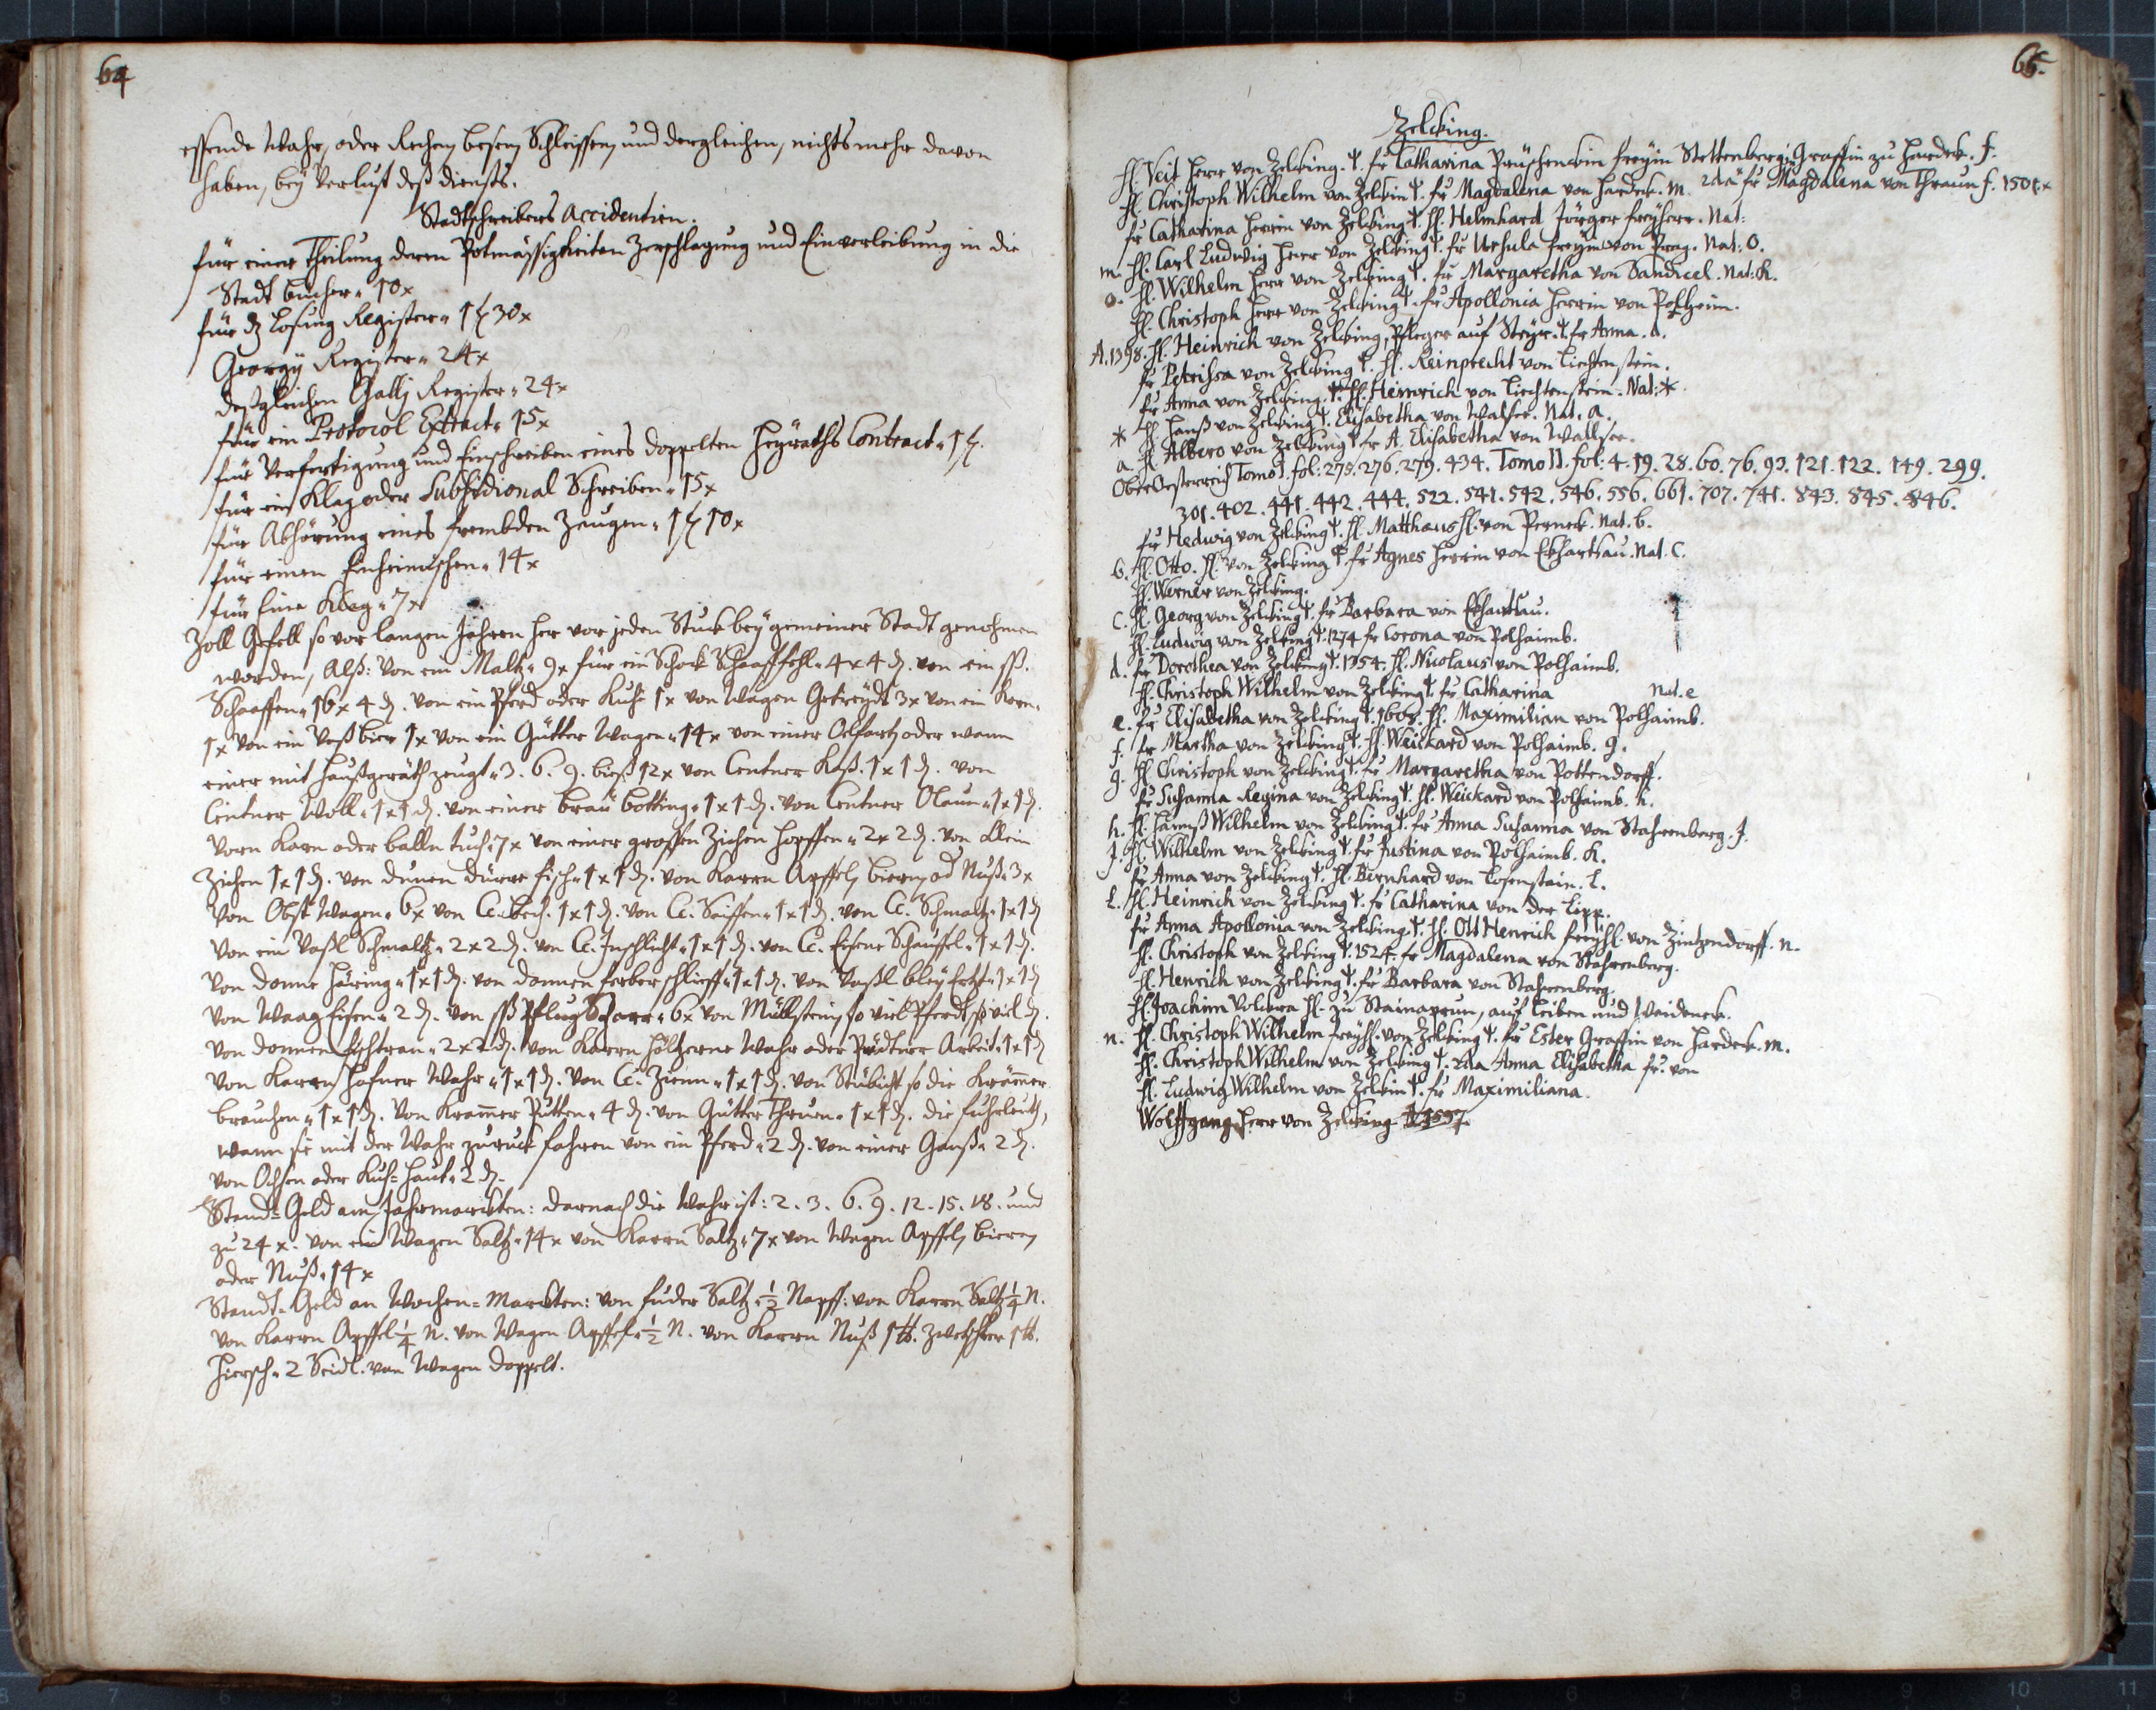 64
essende Wahr, oder Rechen, besem, Schleissen, und dergleichen, nichts mehr davon
haben, bey Verlust deß diensts.
Stadtschreibers Accidentien.
für einer Theilung deren Potmässigkeiten Zerschlagung und Einverleibung in die
Stadt bücher " 10 x
für dz Losung Register " 1 f 30 x
Georgÿ Register " 24 x
deßgleichen Gallj Register " 24 x
für ein Protocol Extract " 15 x
für Verfertigung und Einschreiben eines doppelten Heÿraths Contract " 1 f.
für ein Klag oder Subsidional Schreiben " 15 x
für Abhörung eines frembden Zeugen " 1 f 10 x
für einen Einheimischen " 14 x
für Eine Klag " 7 x
Zoll Gefell so vor langen Jahren her vor jeden Stuck beÿ gemeiner Stadt genohmen
worden, Alß: von ein Maltz " 9 x für ein Schock Schaaffehl " 4 x 4 d. von ein ßß.
Schaaffen " 16 x 4 d. von ein Pferd oder Kuh " 1 x von Wagen Getreÿdt 3 x von ein Karn.
1 x von ein Vaß bier 1 x von ein Gütter Wagen " 14 x von einer Olfartz oder wann
einer mit Haußgeräth zeugt " 3. 6. 9. bieß 12 x von Centner Käß. 1 x 1 d. von
Centner Woll " 1 x 1 d. von einer brau botting " 1 x 1 d. von Centner Olaun " 1 x 1 d.
vorn Karn oder balln tuch " 7 x von einer grossen Ziehen Hopffen " 2 x 2 d. von klein
Ziehen 1 x 1 d. von dunen dürre fisch " 1 x 1 d. von Karrn Apffel, biern, od Nuß " 3 x
Von Obst Wagen " 6 x von Ct. bech. 1 x 1 d. von Ct. Saiffen " 1 x 1 d. von Ct. Schmaltz " 1 x 1 d
von ein Vaßl Schmaltz " 2 x 2 d. von Ct. Inschlicht " 1 x 1 d. von Ct. Eisene Schauffel " 1 x 1 d.
von donne Häring " 1 x 1 d. von donnen ferber schlieff " 1 x 1 d. von Vaßl bleÿ 1 x 1 d
von Waag Eisen " 2 d. von ßß Pflug Schaar " 6 x von Müllstein, so viel Pferdt, so viel d.
von donnen fischtran " 2 x 2 d. von Karrn höltzerne Wahr oder Arbeit " 1 x 1 d
von Karrn Hafner Wahr " 1 x 1 d. von Ct. Zinn " 1 x 1 d. von Stübich so die Krämer
brauchen " 1 x 1 d. von Kramer Putten " 4 d. von Gütter Thruen " 1 x 1 d. die fuhrleuth,
wann sie mit der Wahr zuruck fahren von ein Pferd " 2 d. von einer Ganß " 2 d.
von Ochsen oder Kuh = Haut " 2 d.
Stand = Geld am Jahrmarckten: darnach die Wahr ist: 2. 3. 6. 9. 12. 15. 18. und
zu 24 x. von ein Wagen Saltz " 14 x von Karrn Saltz " 7 x von Wagen Apffel, biern,
oder Nuß " 14 x
Standt = Geld an Wochen = Marckten: von fuder Saltz " 1/2 Napff: von Karrn Saltz 1/4 N.
von Karrn Apffel 1/4 N. von Wagen Apffel " 1/2 N. von Karrn Nuß 1 ℔. Zwetschken 1 ℔.
Hiersch " 2 Seidl. von Wagen doppelt.
65.
Zelcking.
H. Veit Herr von Zelcking. †. fr Catharina Prüschenckin freÿin Stettenberg, Graffin zu Hardeck. f.
H. Christoph Wilhelm von Zelckin †. fr Magdalena von Hardeck. m. 2da fr Magdalena von Thraun f. 1501. x
fr Catharina Herrin von Zelcking †. H. Helmhard Jörger freÿherr. Nat:
m. H. Carl Ludwig Herr von Zelcking †. fr Ursula freÿin von Prag. Nat: O.
o. H. Wilhelm Herr von Zelcking †. fr Margaretha von Sandicel. Nat: K.
H. Christoph Herr von Zelcking †. fr Apollonia Herrin von Polheim.
A. 1398. H. Heinrich von Zelcking, Pfleger auf Steÿr. †. fr Anna. d.
fr Petrissa von Zelcking †. H. Reinprecht von Liechtenstein.
fr Anna von Zelcking. †. H. Heinrich von Liechtenstein. Nat: *.
* H. Hanß von Zelcking †. Elisabetha von Walsee. Nat. a.
a. H. Albero von Zelcking † fr A. Elisabetha von Wallsee.
Ober Oesterreich Tomo I. fol: 275. 276. 279. 434. Tomo II. fol: 4. 19. 28. 60. 76. 93. 121. 122. 149. 299.
301. 402. 441. 442. 444. 522. 541. 542. 546. 556. 661. 707. 741. 843. 845. 846.
fr Hedwig von Zelcking †. H. Matthaus H. von Perneck. Nat. b.
b. H. Otto. H. von Zelcking † fr Agnes Herrin von Ekhartsau. Nat. C.
H. Werner von Zelcking.
C. H. Georg von Zelcking †. fr Barbara von Ekhartsau.
H. Ludwig von Zelcking †. 1274 fr Corona von Polhaimb.
d. fr Dorothea von Zelcking †. 1354. H. Nicolaus von Polhaimb.
H. Christoph Wilhelm von Zelcking †. fr Catharina Nat. e
e. fr Elisabetha von Zelcking †. 1608. H. Maximilian von Polhaimb.
f. fr Martha von Zelcking †. H. Weickard von Polhaimb. g.
g. H. Christoph von Zelcking †. fr Margaretha von Pottendorff.
fr Susanna Regina von Zelcking †. H. Weickard von Polhaimb. h.
h. H. Hannß Wilhelm von Zelcking †. fr Anna Susanna von Stahrenberg. J.
J. H. Wilhelm von Zelcking †. fr Justina von Polhaimb. K.
fr Anna von Zelcking †. H. Bernhard von Losenstain. L.
L. H. Heinrich von Zelcking †. fr Catharina von der Lipp.
fr Anna Apollonia von Zelcking †. H. Ott Henrich freÿH. von Zintzendorff. n.
H. Christoph von Zelcking †. 1524. fr Magdalena von Stahrenberg.
H. Henrich von Zelcking †. fr Barbara von Stahrenberg.
H. Joachim Volckra H. zu Stainaprun, auf Leiben und Waideneck.
n. H. Christoph Wilhelm freÿH. von Zelcking †. fr Ester Graffin von Hardeck. m.
H. Christoph Wilhelm von Zelcking †. 2da Anna Elisabetha fr. von
H. Ludwig Wilhelm von Zelckin †. fr Maximiliana.
Wolffgang Herr von Zelcking